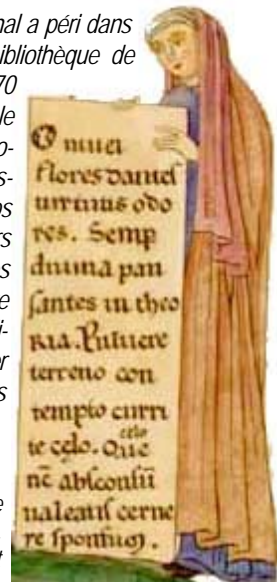 nal a péri dans
ibliothèque de
70
le
o-
s-
os
rs
s
e
i-
or
s
e
t
O niuei
flores dantes
uirtutis odo
res. Semp
diuina pau
santes in theo
ria. Puluere
terreno con
tempto curri
te celo. Que
celo
nc absconsu
ualeatis cerne
re sponsum.